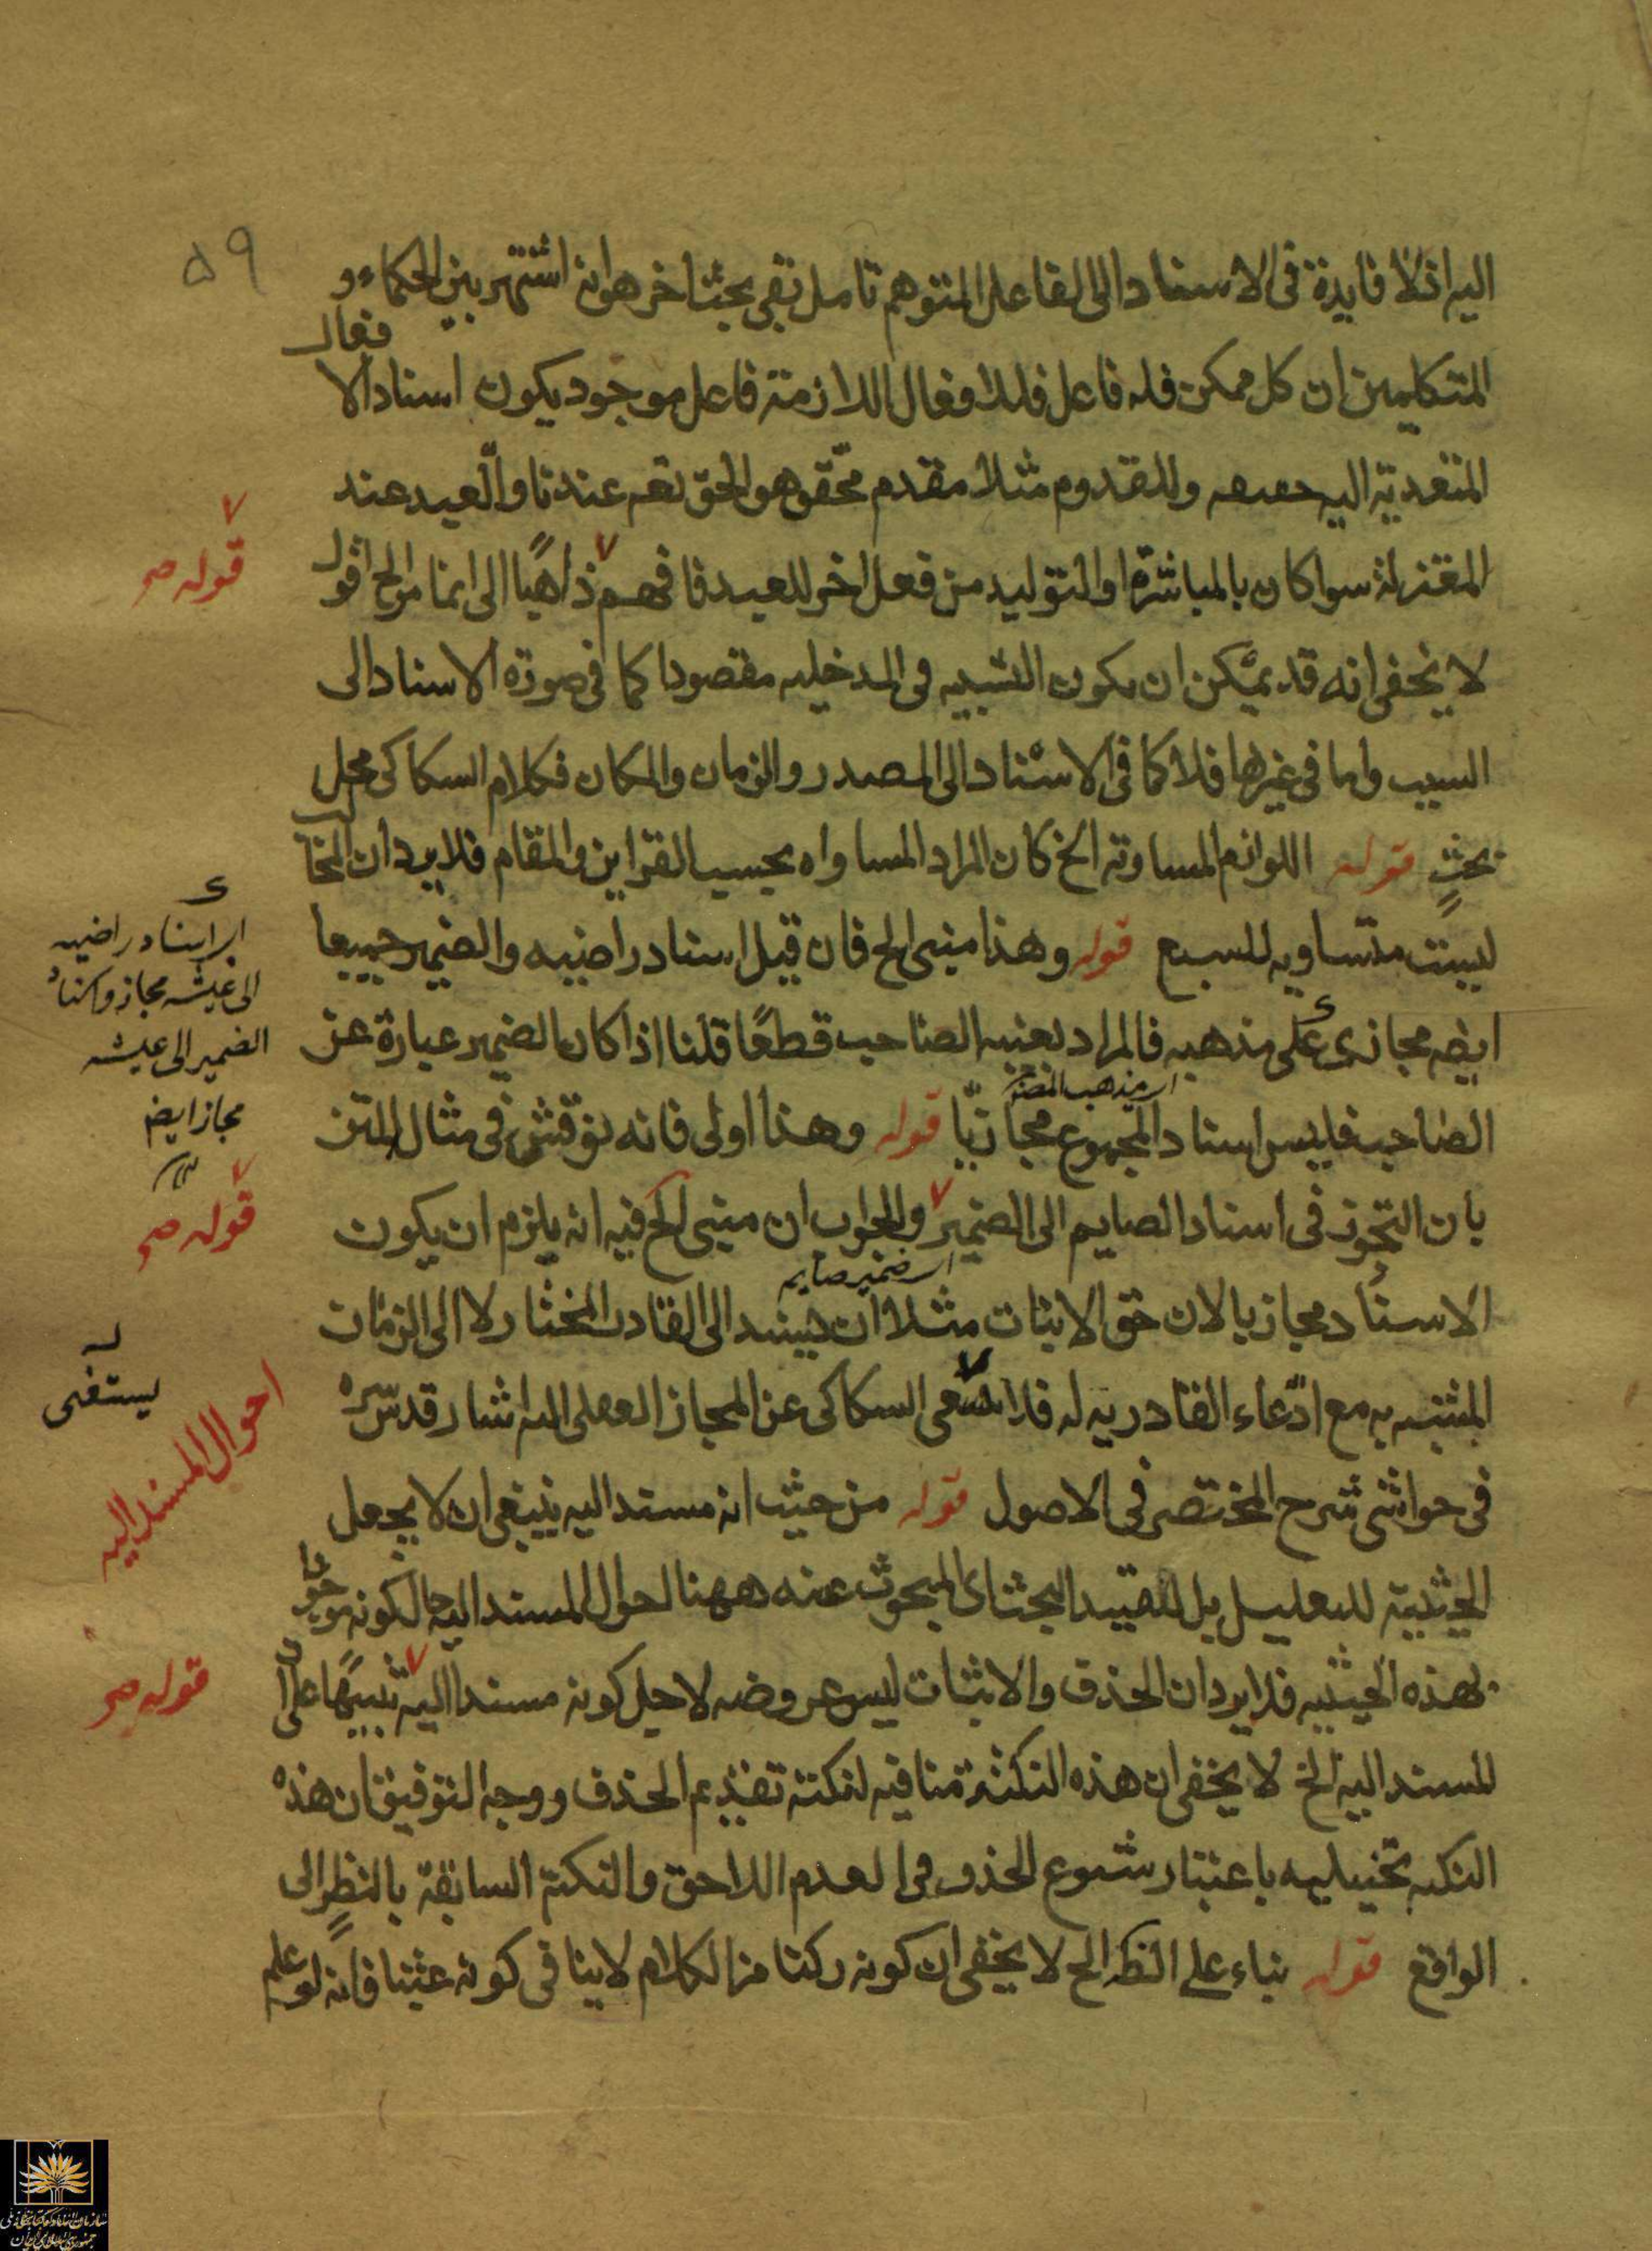 ۵۹
اليه اذ لا فايدة فى الاسناد الى الفاعل المتوهم تامل بقى بحث اخر هو انه اشتهر بين الحكماء و
المتكلمين ان كل ممكن فله فاعل فللافعال اللازمة فاعل موجود يكون اسناد الافعال
المتعدية اليه حقيقه وللقدوم مثلا مقدم محقق هو الحق تعم عندنا والعبد عند
المعتزلة سوا كان بالمباشرة او التوليد من فعل اخر للعبد فافهم ذاهبًا الى ان ما مر الخ اقول
قوله صح
لا يخفى انه قد يمكن ان يكون التشبيه فى المدخليه مقصودا كما فى صورة الاسناد الى
السبب واما فى غيرها فلا كما فى الاسناد الى المصدر والزمان والمكان فكلام السكاكى محل
بحثٍ قوله اللوازم المساوية الخ كان المراد المساواه بحسب القراين والمقام فلا يرد ان المخالب
ليست متساويه للسبع قوله وهذا مبنى الخ فان قيل اسناد راضيه والضمير جميعا
ايضه مجازى على مذهبه فالمراد بعيشه الصاحب قطعًا قلنا اذا كان الضمير عبارة عن
اى مذهب المص
اى اسناد راضيه
الى عيشه مجاز واسناد
الضمير الى عيشه
مجاز ايض
الصاحب فليس اسناد المجموع مجازيّا قوله وهذا اولى فانه نوقش فى مثال المتن
بان التجوز فى اسناد الصايم الى الضمير والجواب ان مبنى الخ فيه انه يلزم ان يكون
قوله صح
اى ضمير صايم
الاسناد مجازيا لان حق الاثبات مثلا ان يسند الى القادر المختار لا الى الزمان
المشبه به مع ادّعاء القادريه له فلا يستغنى السكاكى عن المجاز العقلى اليه اشار قدس سره
يستغنى
فى حواشى شرح المختصر فى الاصول قوله من حيث انه مسند اليه ينبغى ان لا يجعل
احوال المسند اليه
الحيثية للتعليل بل للتقييد البحث اى المبحوث عنه ههنا احوال المسند اليه حالكونه موخوذا
بهذه الحيثيه فلا يرد ان الحذف والاثبات ليس عروضه لاجل كونه مسندا اليه تنبيهًا على ان
قوله صح
المسند اليه الخ لا يخفى ان هذه النكتة منافيه لنكتة تقديم الحذف ووجه التوفيق ان هذه
النكته تخييليه باعتبار شيوع الحذف فى العدم اللاحق والنكتة السابقة بالنظر الى
الواقع قوله بناء على الظه الخ لا يخفى ان كونه ركنا من الكلام لا ينافى كونه عبثا فانه لو علم